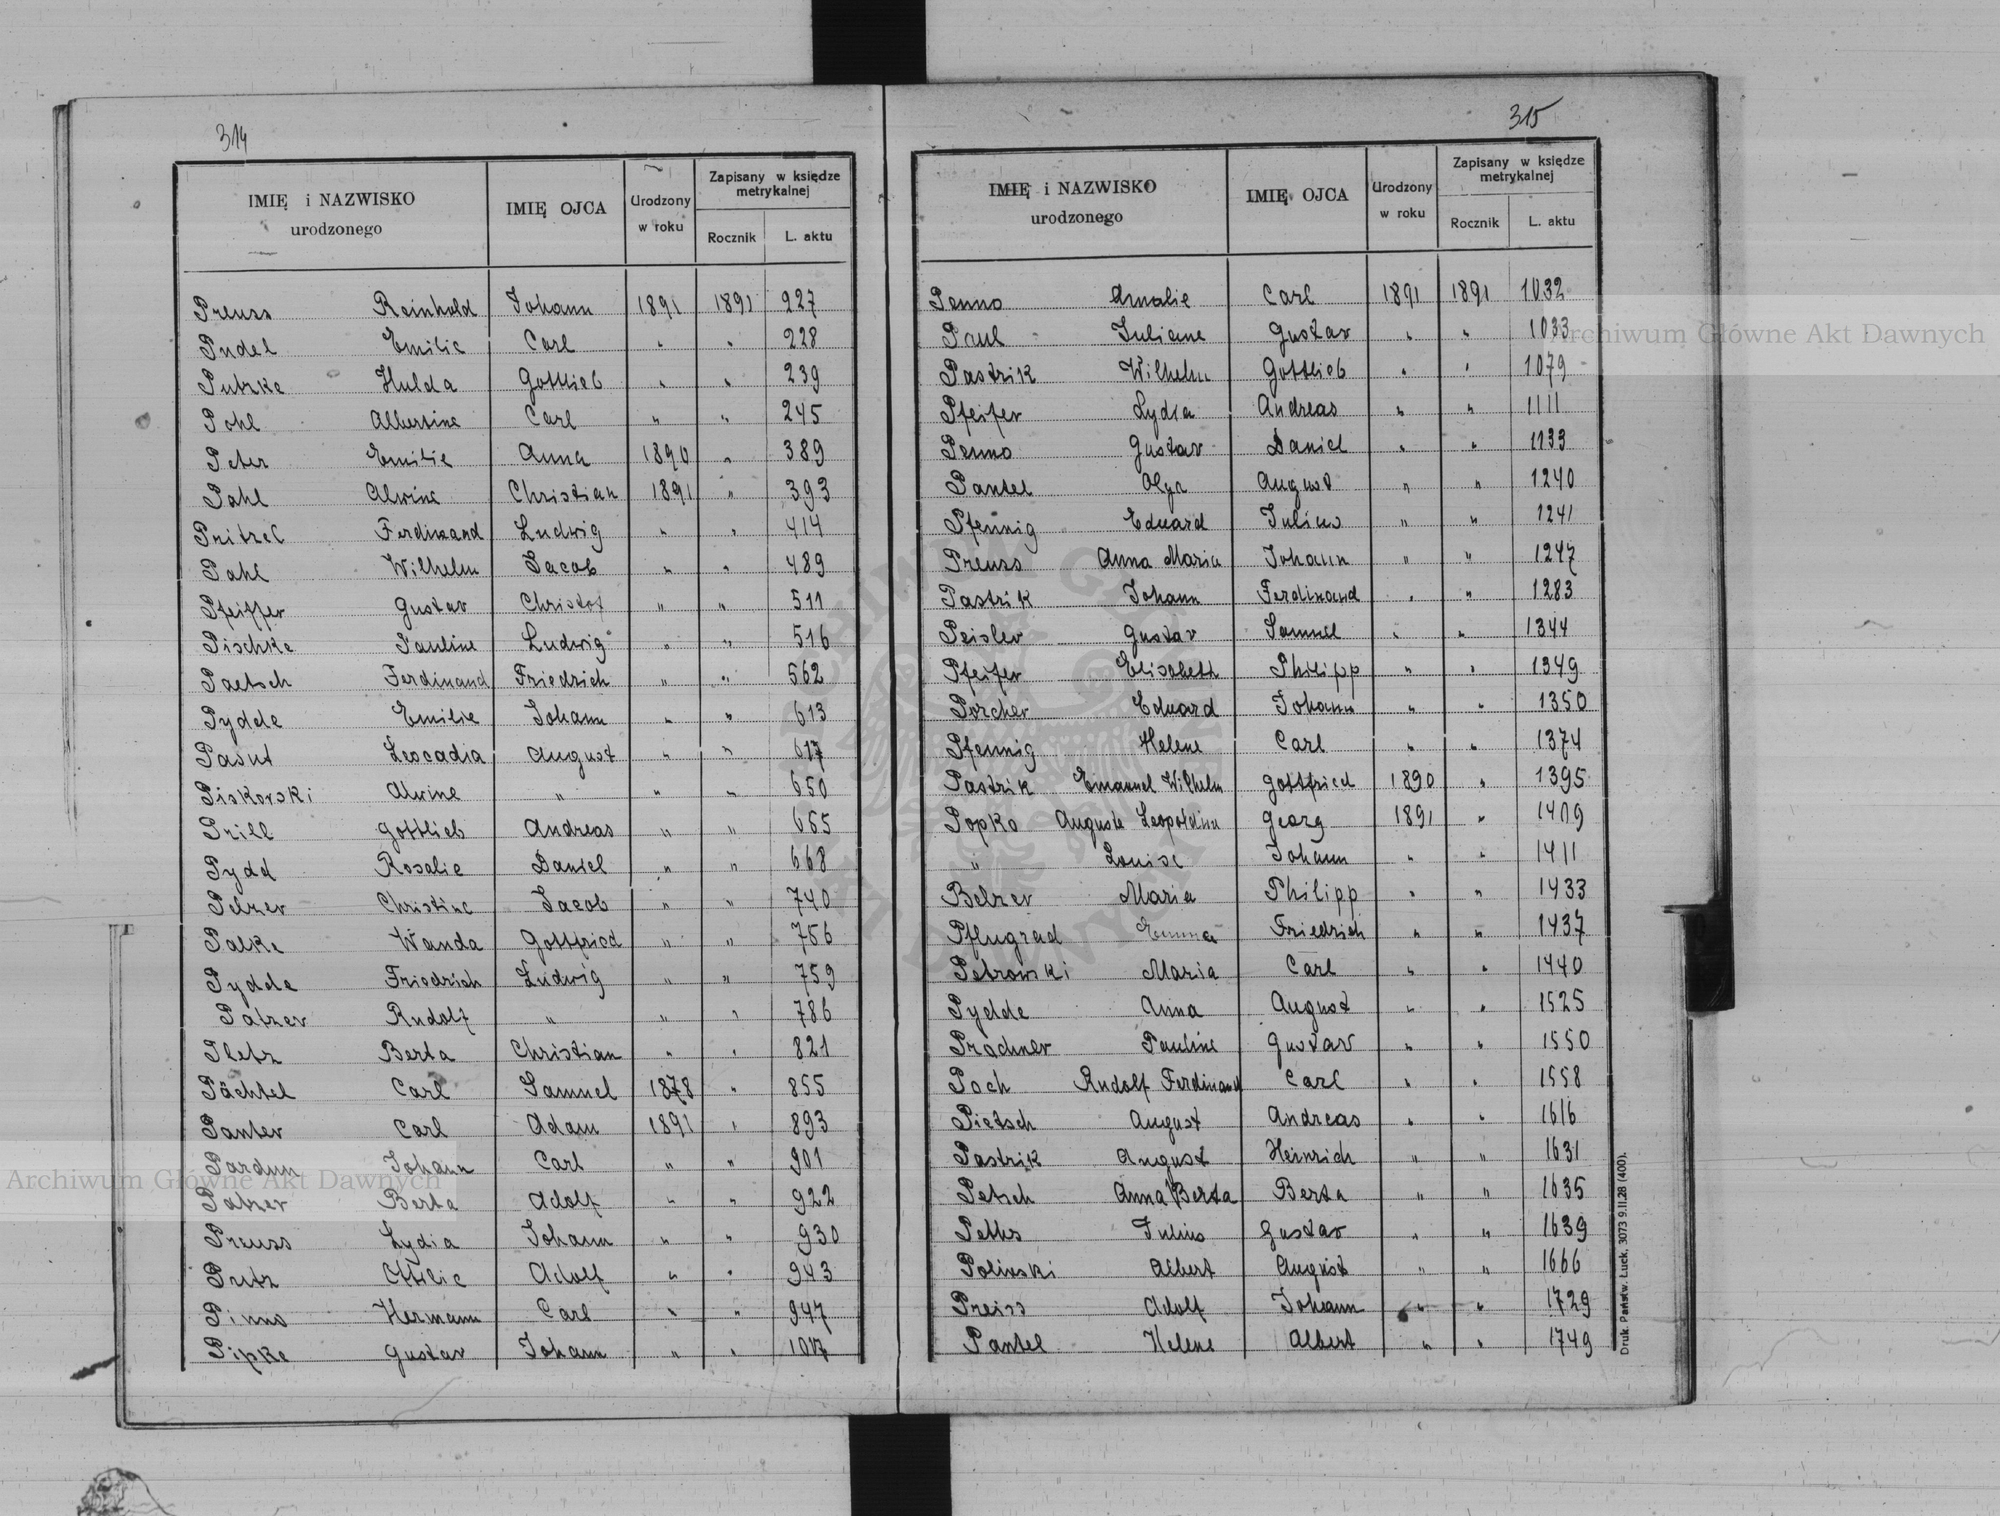 314
IMIĘ i NAZWISKO urodzonego IMIĘ OJCA Urodzony w roku Zapisany w księdze metrykalnej Rocznik L. aktu
Preuss Reinhold Johann 1891 1891 227
Pudel Emilie Carl " " 228
Putzke Hulda Gottlieb " " 239
Pohl Albertine Carl " " 245
Peter Emilie Anna 1890 " 389
Pahl Alwine Christian 1891 " 393
Pritzel Ferdinand Ludwig " " 414
Pahl Wilhelm Jacob " " 489
Pfeiffer Gustav Christof " " 511
Pischke Pauline Ludwig " " 516
Paetsch Ferdinand Friedrich " " 562
Pydde Emilie Johann " " 613
Pasut Leocadia August " " 617
Piskorski Alwine " " " 650
Prill Gottlieb Andreas " " 665
Pydd Rosalie Daniel " " 668
Pelzer Christine Jacob " " 740
Palke Wanda Gottfried " " 756
Pydde Friedrich Ludwig " " 759
Patzer Rudolf " " " 786
Pletz Berta Christian " " 821
Pächtel Carl Samuel 1878 " 855
Panter Carl Adam 1891 " 893
Pardun Johann Carl " " 901
Patzer Berta Adolf " " 922
Preuss Lydia Johann " " 930
Putz Ottilie Adolf " " 943
Pinno Hermann Carl " " 947
Pipke Gustav Johann " " 1017
315
IMIĘ i NAZWISKO urodzonego IMIĘ OJCA Urodzony w roku Zapisany w księdze metrykalnej Rocznik L. aktu
Penno Amalie Carl 1891 1891 1032
Paul Juliane Gustav " " 1033
Pastrik Wilhelm Gottlieb " " 1079
Pfeifer Lydia Andreas " " 1111
Penno Gustav Daniel " " 1133
Pantel Olga August " " 1240
Pfennig Eduard Julius " " 1241
Preuss Anna Maria Johann " " 1247
Pastrik Johann Ferdinand " " 1283
Peisler Gustav Samuel " " 1344
Pfeifer Elisabeth Philipp " " 1349
Porcher Eduard Johann " " 1350
Pfennig Helene Carl " " 1374
Pastrik Emanuel Wilhelm Gottfried 1890 " 1395
Popko Auguste Leopoldine Georg 1891 " 1409
" Louise Johann " " 1411
Belzer Maria Philipp " " 1433
Pflugrad Emma Friedrich " " 1437
Petrowski Maria Carl " " 1440
Pydde Anna August " " 1525
Prochner Pauline Gustav " " 1550
Poch Rudolf Ferdinand Carl " " 1558
Pietsch August Andreas " " 1616
Pastrik August Heinrich " " 1631
Petsch Anna Berta Berta " " 1635
Peths Julius Gustav " " 1639
Polinski Albert August " " 1666
Preiss Adolf Johann " " 1729
Pantel Helene Albert " " 1749
Druk. Państw. Łuck. 3073 9.II.28 (400).
Archiwum Główne Akt Dawnych
Archiwum Główne Akt Dawnych